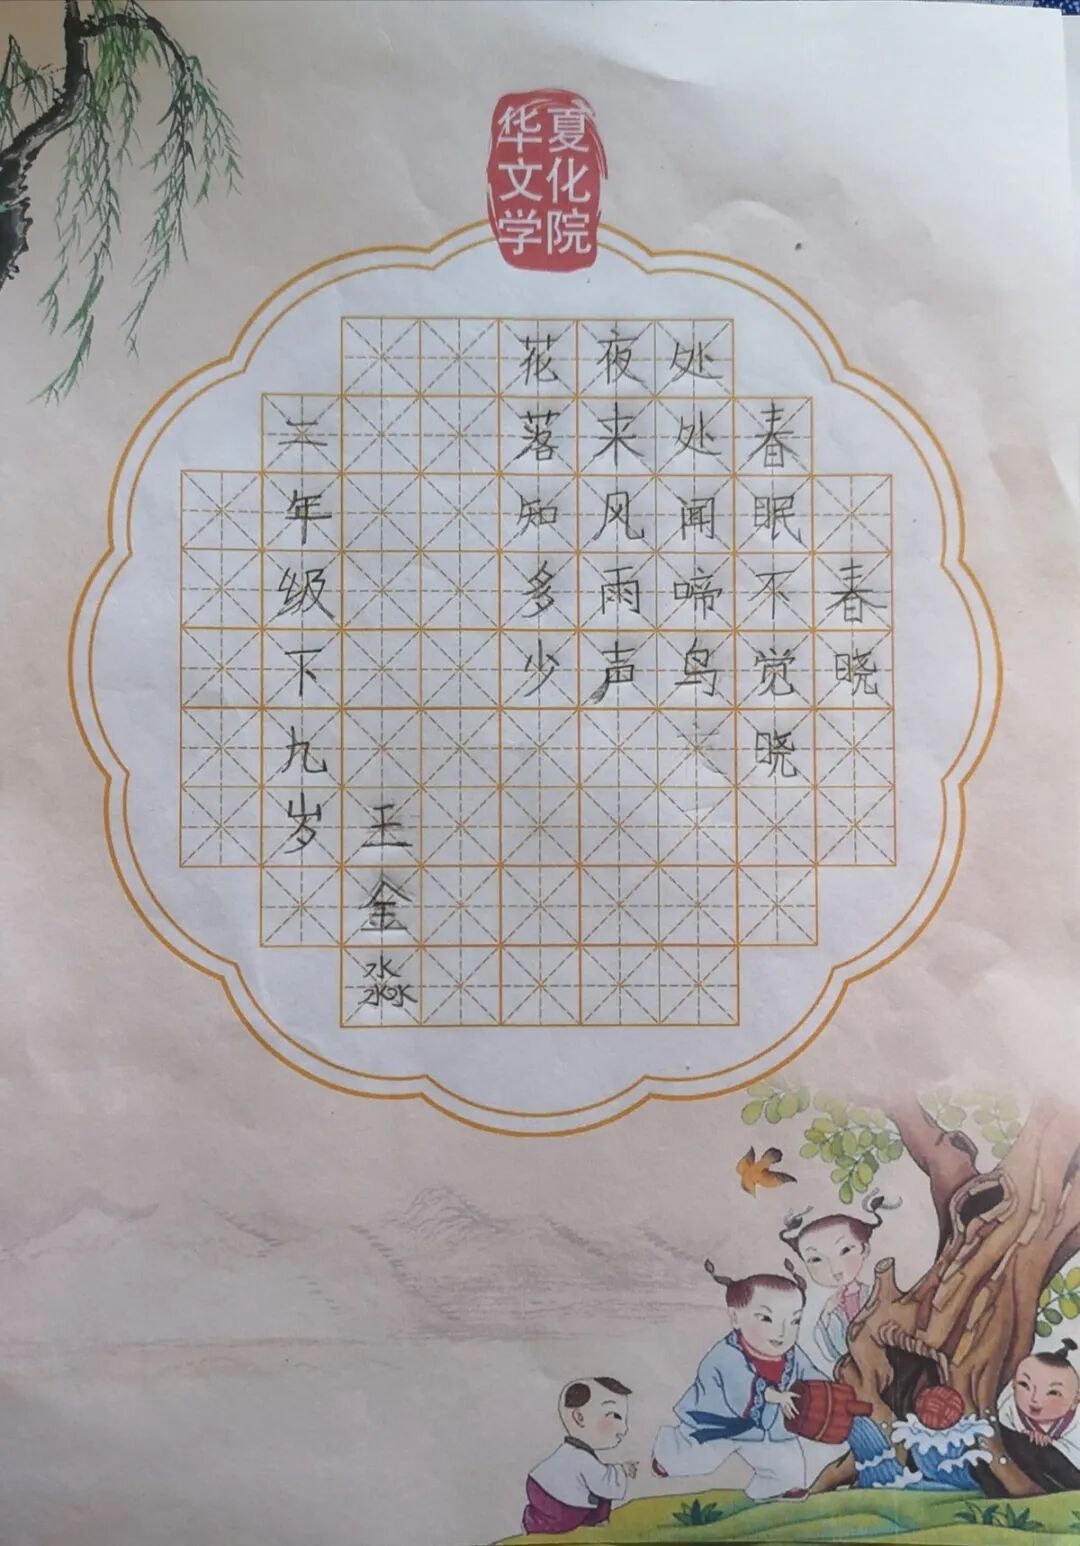 华夏
文化
学院
春晓
春眠不觉晓
处处闻啼鸟
夜来风雨声
花落知多少
王金淼
三年级下九岁